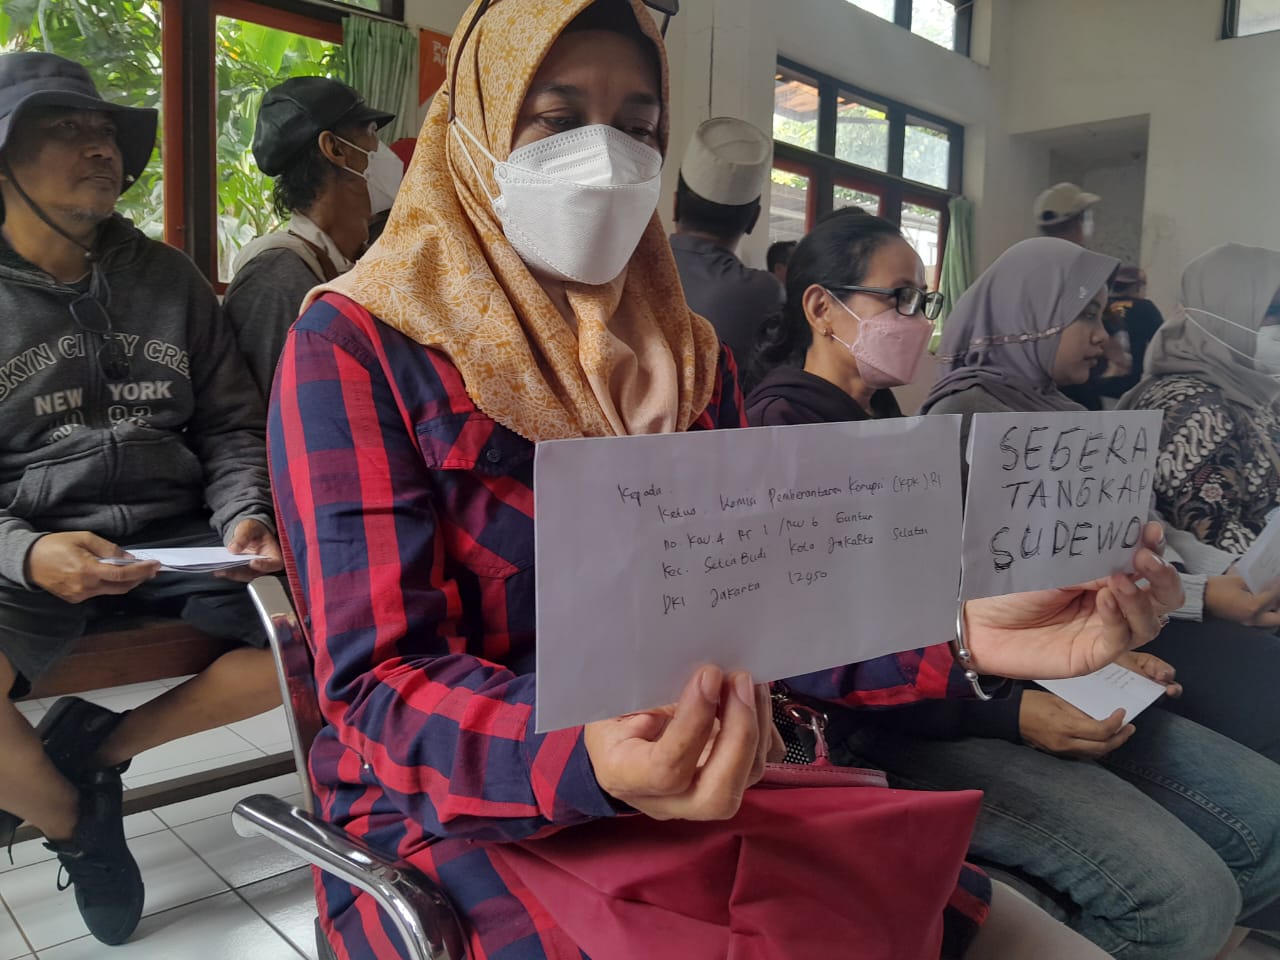 SKYN CITY CREW
NEW YORK
Kepada.
Ketua. Komisi Pemberantaran Korupsi (KPK) RI
no. Kav. 4 RT 1 / RW 6 Guntur
Kec. SetiaBudi Kota Jakarta Selatan
DKI Jakarta 12950
SEGERA
TANGKAP
SUDEWO